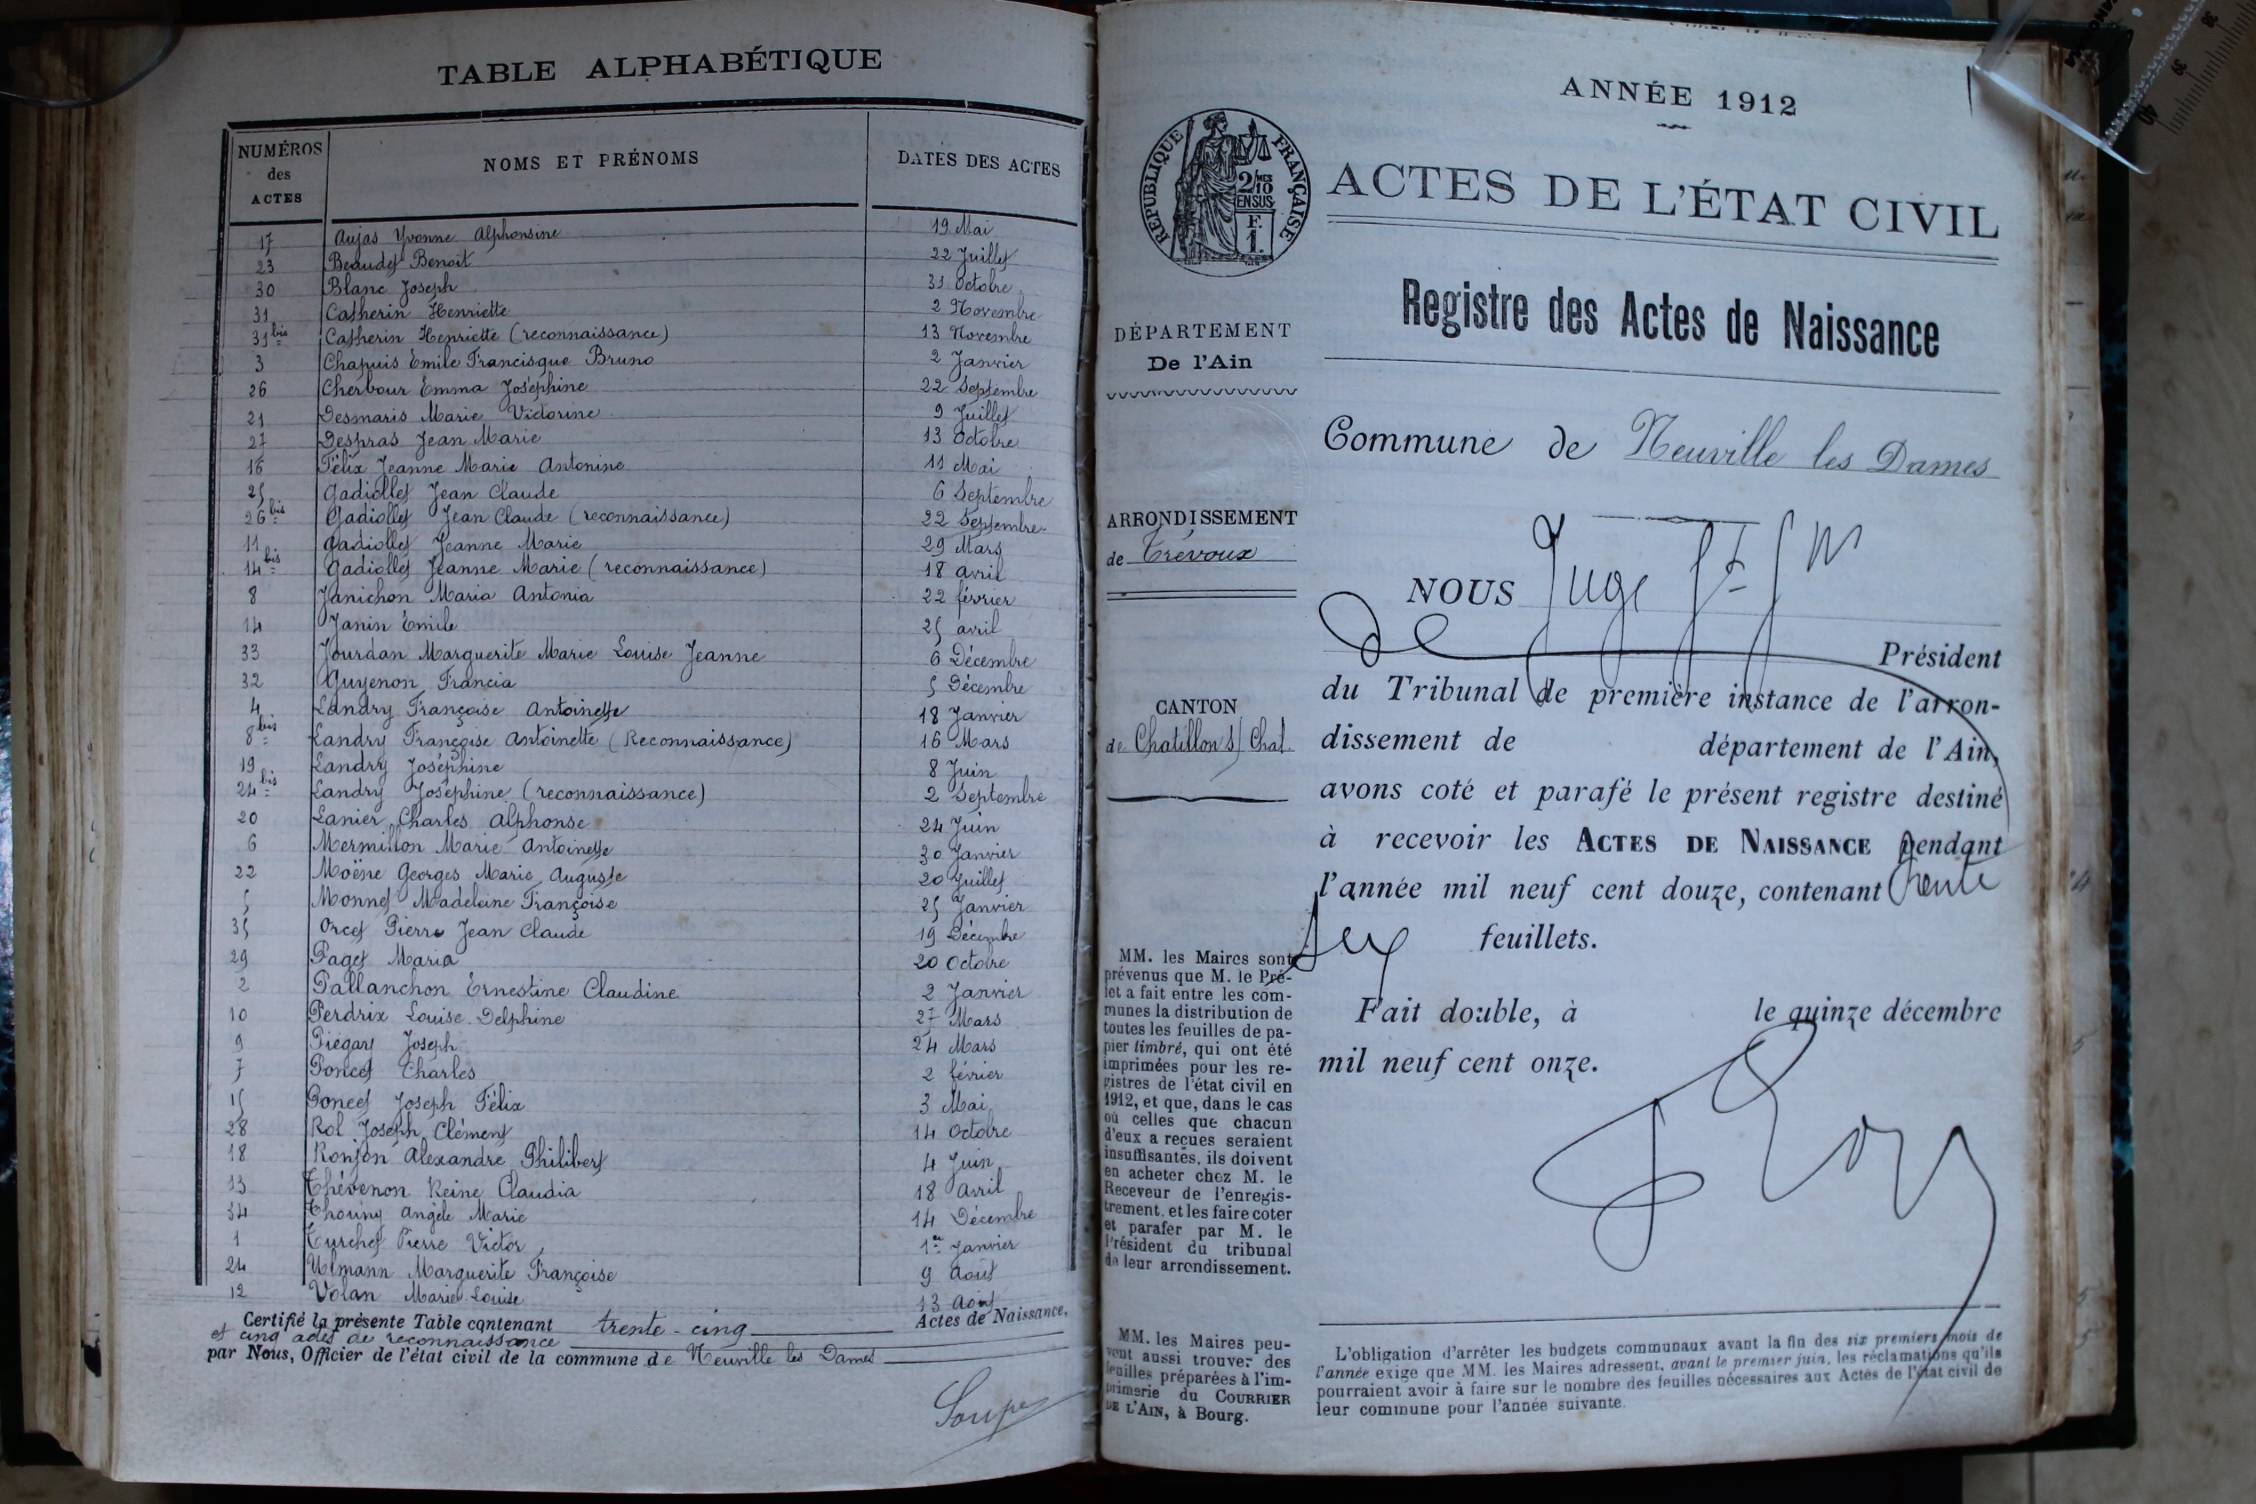 TABLE ALPHABÉTIQUE
NUMÉROS des ACTES NOMS ET PRÉNOMS DATES DES ACTES
17 Aujas Yvonne Alphonsine 19 Mai
23 Beaudet Benoit 22 Juillet
30 Blanc Joseph 31 Octobre
31 Catherin Henriette 2 Novembre
31 bis Catherin Henriette (reconnaissance) 13 Novembre
3 Chapuis Émile Francisque Bruno 2 Janvier
26 Cherbour Emma Joséphine 22 Septembre
21 Desmaris Marie Victorine 9 Juillet
27 Despras Jean Marie 13 Octobre
16 Félix Jeanne Marie Antonine 11 Mai
25 Gadiollet Jean Claude 6 Septembre
26 bis Gadiollet Jean Claude (reconnaissance) 22 Septembre
11 Gadiollet Jeanne Marie 29 Mars
14 bis Gadiollet Jeanne Marie (reconnaissance) 18 avril
8 Janichon Maria Antonia 22 février
14 Janin Émile 25 avril
33 Jourdan Marguerite Marie Louise Jeanne 6 Décembre
32 Guyenon Francia 5 Décembre
4 Landry Françoise Antoinette 18 Janvier
8 bis Landry Françoise Antoinette (Reconnaissance) 16 Mars
19 Landry Joséphine 8 Juin
24 bis Landry Joséphine (reconnaissance) 2 Septembre
20 Lanier Charles Alphonse 24 Juin
6 Mermillon Marie Antoinette 30 Janvier
22 Moëne Georges Marie Auguste 20 Juillet
5 Monnet Madeleine Françoise 25 Janvier
35 Orcet Pierre Jean Claude 19 Décembre
29 Paget Maria 20 Octobre
2 Pallanchon Ernestine Claudine 2 Janvier
10 Perdrix Louise Delphine 27 Mars
9 Piégart Joseph 24 Mars
7 Poncet Charles 2 février
15 Poncet Joseph Félix 3 Mai
28 Rol Joseph Clément 14 Octobre
18 Ronjon Alexandre Philibert 4 Juin
13 Thévenon Reine Claudia 18 Avril
34 Thoriny Angèle Marie 14 Décembre
1 Turchet Pierre Victor 1er Janvier
24 Ulmann Marguerite Françoise 9 Août
12 Volan Marie Louise 13 Août
Certifié la présente Table contenant trente-cinq Actes de Naissance,
et cinq actes de reconnaissance
par Nous, Officier de l'état civil de la commune de Neuville les Dames
Soupe
ANNÉE 1912
RÉPUBLIQUE FRANÇAISE
2/10 MES
EN SUS
F.
1.
ACTES DE L'ÉTAT CIVIL
Registre des Actes de Naissance
DÉPARTEMENT
De l'Ain
Commune de Neuville les Dames
ARRONDISSEMENT
de Trévoux
CANTON
de Chatillon s/ Chal.
NOUS Juge
de Président
du Tribunal de première instance de l'arron-
dissement de département de l'Ain,
avons coté et parafé le présent registre destiné
à recevoir les ACTES DE NAISSANCE pendant
l'année mil neuf cent douze, contenant trente
six feuillets.
Fait double, à le quinze décembre
mil neuf cent onze.
MM. les Maires sont
prévenus que M. le Pré-
fet a fait entre les com-
munes la distribution de
toutes les feuilles de pa-
pier timbré, qui ont été
imprimées pour les re-
gistres de l'état civil en
1912, et que, dans le cas
où celles que chacun
d'eux a reçues seraient
insuffisantes, ils doivent
en acheter chez M. le
Receveur de l'enregis-
trement. et les faire coter
et parafer par M. le
Président du tribunal
de leur arrondissement.
MM. les Maires peu-
vent aussi trouver des
feuilles préparées à l'im-
primerie du COURRIER
DE L'AIN, à Bourg.
L'obligation d'arrêter les budgets communaux avant la fin des six premiers mois de
l'année exige que MM. les Maires adressent, avant le premier juin, les réclamations qu'ils
pourraient avoir à faire sur le nombre des feuilles nécessaires aux Actes de l'état civil de
leur commune pour l'année suivante.
38
39
40